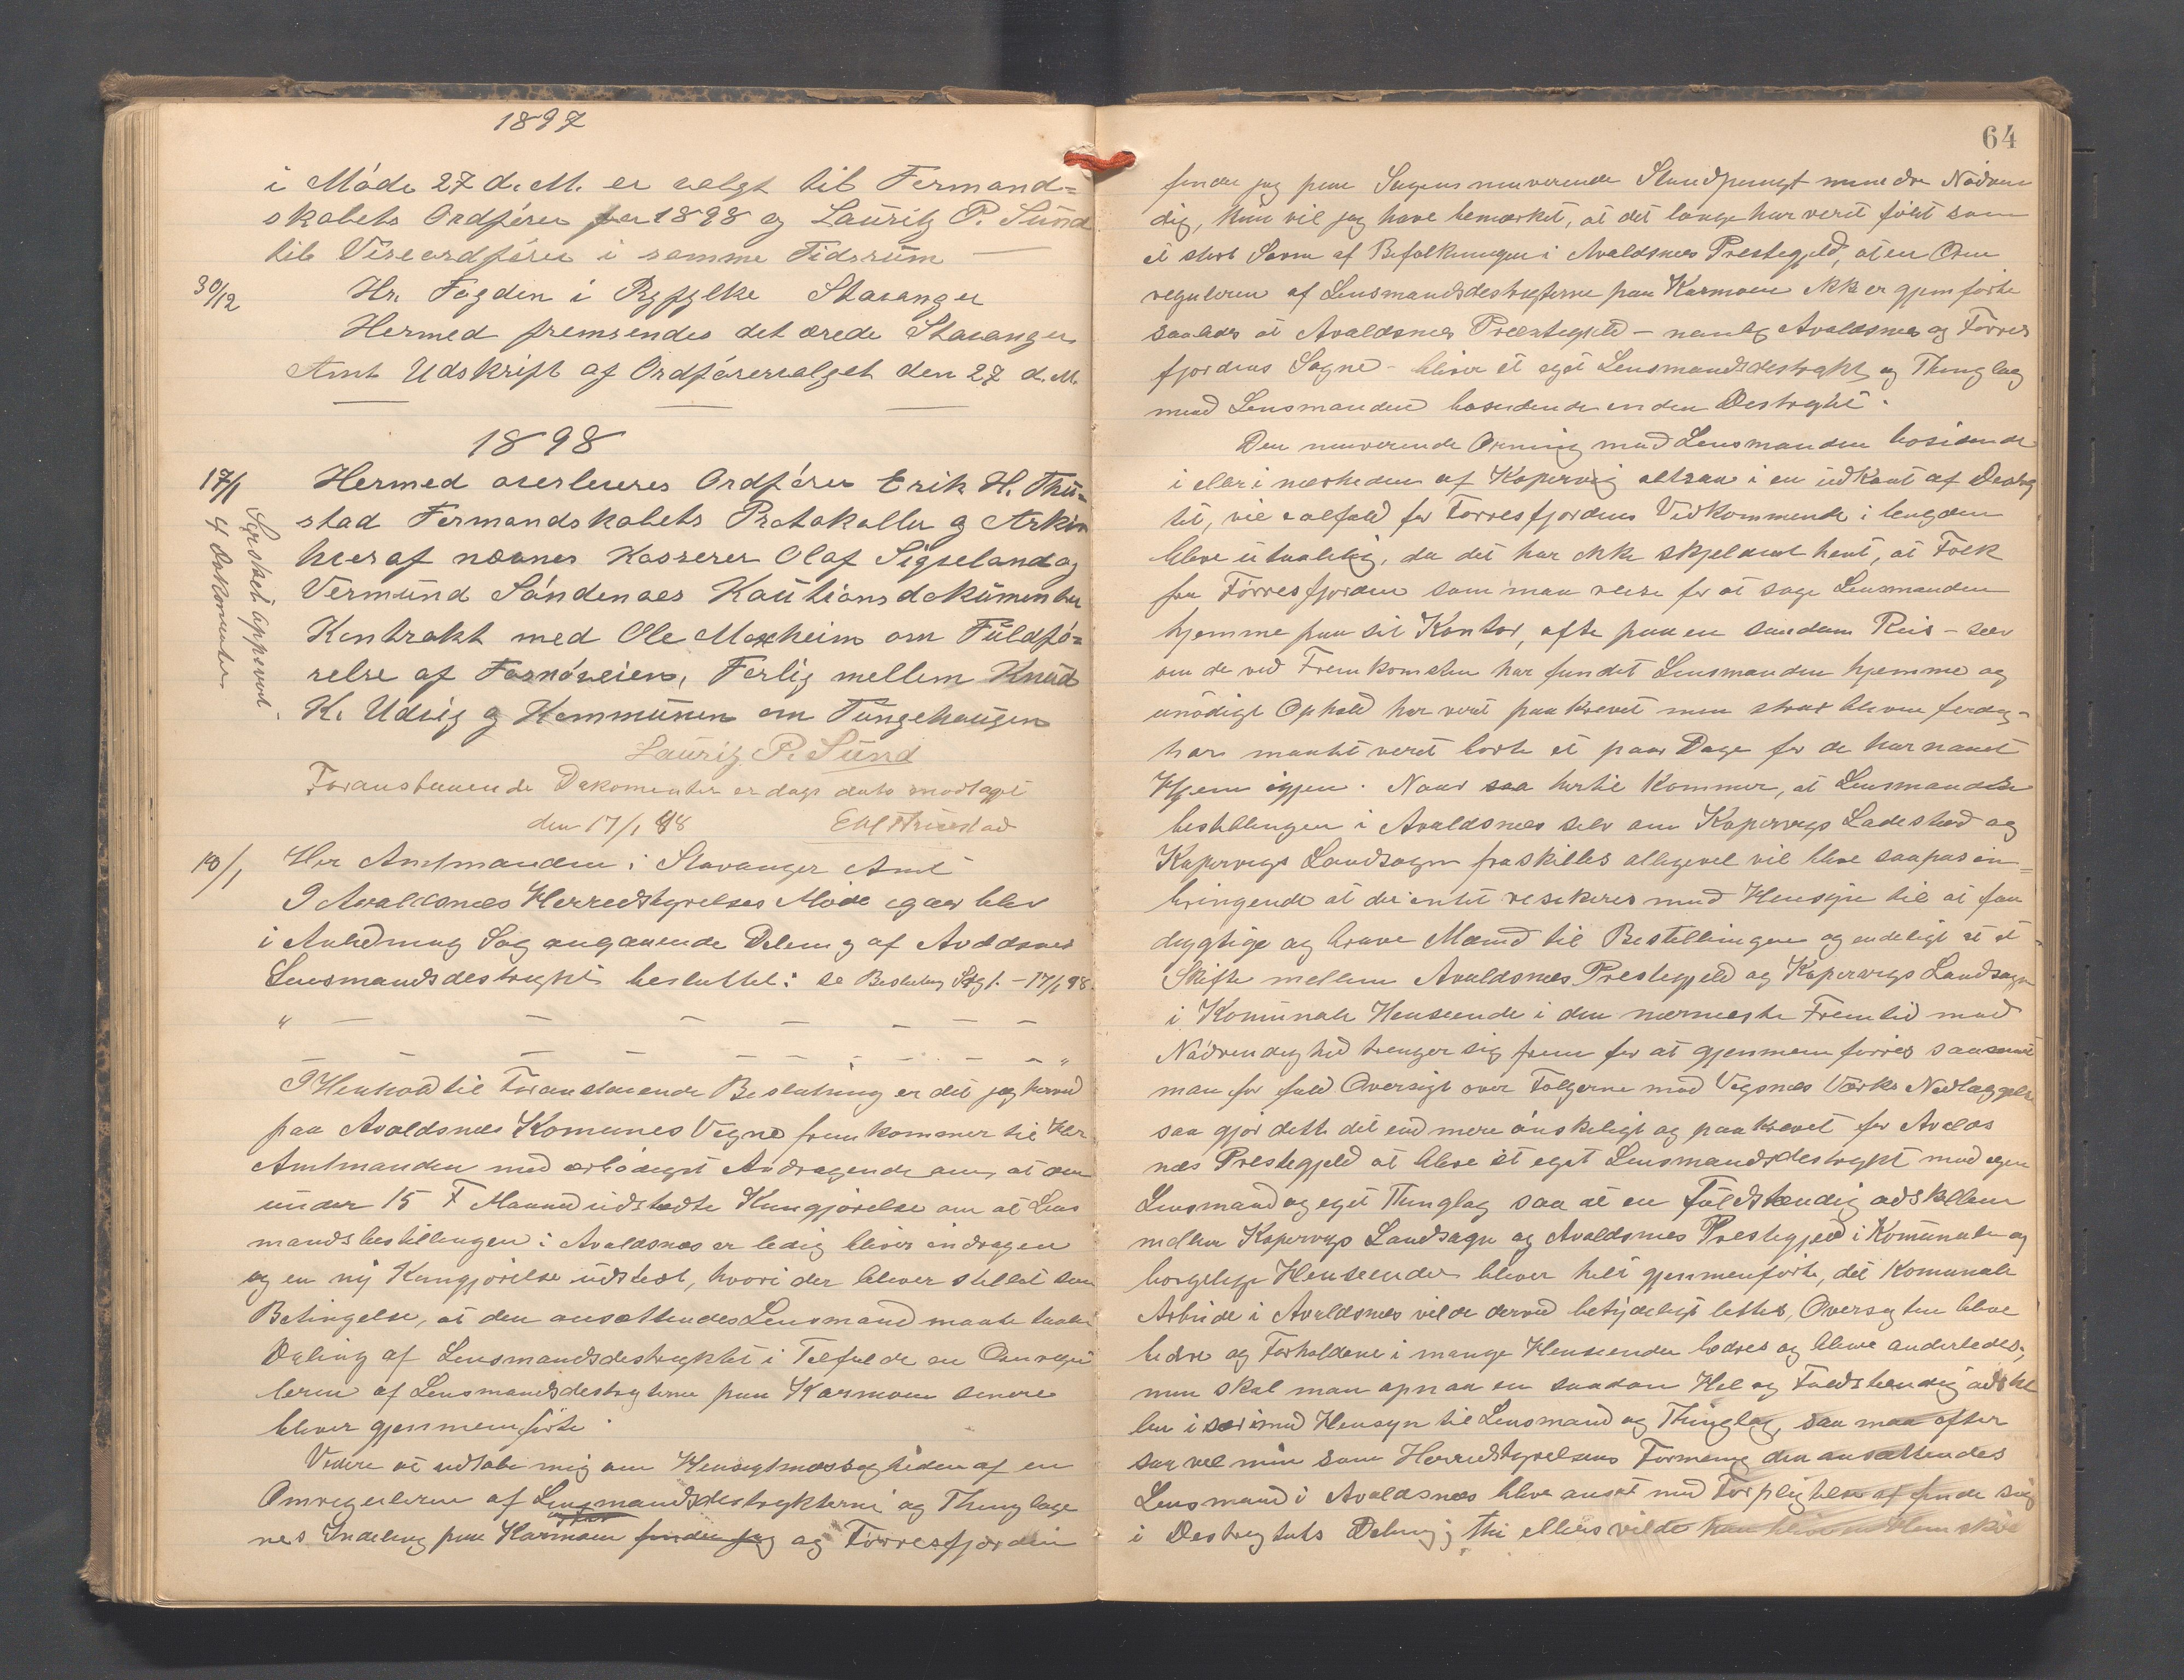 1897
i Møde 27 d. M. er valgt til Formand=
skabets Ordfører for 1898 og Lauritz P. Sund
til Viseordfører i samme Tidsrum —
30/12 Hr. Fogden i Ryfylke Stavanger
Hermed fremsendes det ærede Stavanger
Amt Udskrift af Ordførervalget den 27 d. M.
1898
17/1 Hermed overleveres Ordfører Erik H. Thu=
stad Formandskabets Protokoller og Arkiv
hveraf nævnes Kasserer Olaf Sigseland og
Vermund Søndenaes Kautionsdokumenter
Kontrakt med Ole Moxheim om Fuldfø=
relse af Fosnøveien, Forlig mellem Knud
K. Udvig og Kommunen om Tungehaugen
Særskelt oppevent
4 Dokumenter
Lauritz P. Sund
Foranstaaende Dokomenter er dags dato modtaget
den 17/1 98 EH Thuestad
18/1 Her Amtmanden i Stavanger Amt
I Avaldsnes Herredstyrelses Møde igaar blev
i Anledning Sag angaaende Deling af Avaldsnes
Lensmandsdestrykt besluttet: se Beslutning 17/1 98.
" — — — — — — —
— — — — — — — — — — "
I Henhold til Foranstaaende Beslutning er det jeg herved
paa Avaldsnes Komunes Vegne fremkommer til Her
Amtmanden med ærbødigst Andragende om, at den
under 15 F Maaned udstedte Kungjørelse om at Lens
mandsbestillingen i Avaldsnes er ledig bliver indragen
og en ny Kungjørelse udstedt, hvori der bliver stillet som
Betingelse, at den ansættendes Lensmand maate taale
Deling af Lensmandsdestryktet i Tilfelde en Omregu
lering af Lensmandsdestrykterne paa Karmøen senere
bliver gjennemført.
Videre at udtale mig om Hensigtmæssigheden af en
Omregulering af Lensmandsdestrykterne og Thinglage
nes Indeling paa Karmøen finder jeg og Førresfjorden
64
finder jeg paa Sagens nuværende Standpungt mindre Nødven
dig, kun vil jeg have bemærket, at det længe har veret følt som
et stort Savn af Befolkningen i Avaldsnes Prestegjeld, at en Om
regulering af Lensmandsdestrykterne paa Karmøen ikke er gjenført
saaledes at Avaldsnes Præstegjeld — nemlig Avaldsnes og Førres
fjordens Sogne — bliver et eget Lensmandsdestrykt og Thinglag
med Lensmanden bosidende inden Destryktet.
Den nuverende Orning med Lensmanden bosidende
i eller i nærheden af Kopervig altsaa i en udkant af Destryk
tet, vil ialfald for Førresfjordens Vedkommende i lengden
blive utaalelig, da det har ikke skjeldent hent, at Folk
fra Førresfjorden som maa reise for at søge Lensmanden
hjemme paa sit Kontor, ofte paa en saadan Reis — selv
om de ved Fremkomsten har fundet Lensmanden hjemme og
unødigt Ophold har veret paakrevet men strax bleven ferdig —
har maatt veret borte et paar Dage før de har naaet
Hjem igjen. Naar saa hertil kommer, at Lensmands
bestillingen i Avaldsnes selv om Kopervigs Ladested og
Kopervigs Landsogn fraskilles alligevel vil blive saapas in=
bringende at der intet resikeres med Hensyn til at faa
dygtige og brave Mænd til Bestillingen og endeligt at et
Skifte mellem Avaldsnes Prestegjeld og Kopervigs Landsogn
i Komunale Henseende i den nærmeste Fremtid med
Nødvendighed trenger sig frem for at gjennemføres saasnart
man for fuld Oversigt over Følgerne med Vigsnes Værks Nedlæggelse
saa gjør dette det end mere ønskeligt og paakrevet for Avalds
nes Prestegjeld at blive et eget Lensmandsdestrykt med egen
Lensmand og eget Thinglag saa at en Fuldstændig adskillen
mellem Kopervigs Landsogn og Avaldsnes Prestegjeld i Komunale og
borgelige Henseender bliver helt gjennemført, det Komunale
Arbeide i Avaldsnes vilde derved betydeligt lettes, Oversigten blive
bedre og Forholdene i mange Henseender bedres og blive anderledes;
men skal man opnaa en saadan Hel og Fuldstændig adskil
len især med Hensyn til Lensmand og Thinglag, saa maa efter
saavel min som Herredstyrelsens Formening den ansættendes
Lensmand i Avaldsnes blive ansat med Forpligtelse at finde sig
i Destryktets Deling; thi ellers vilde han blive